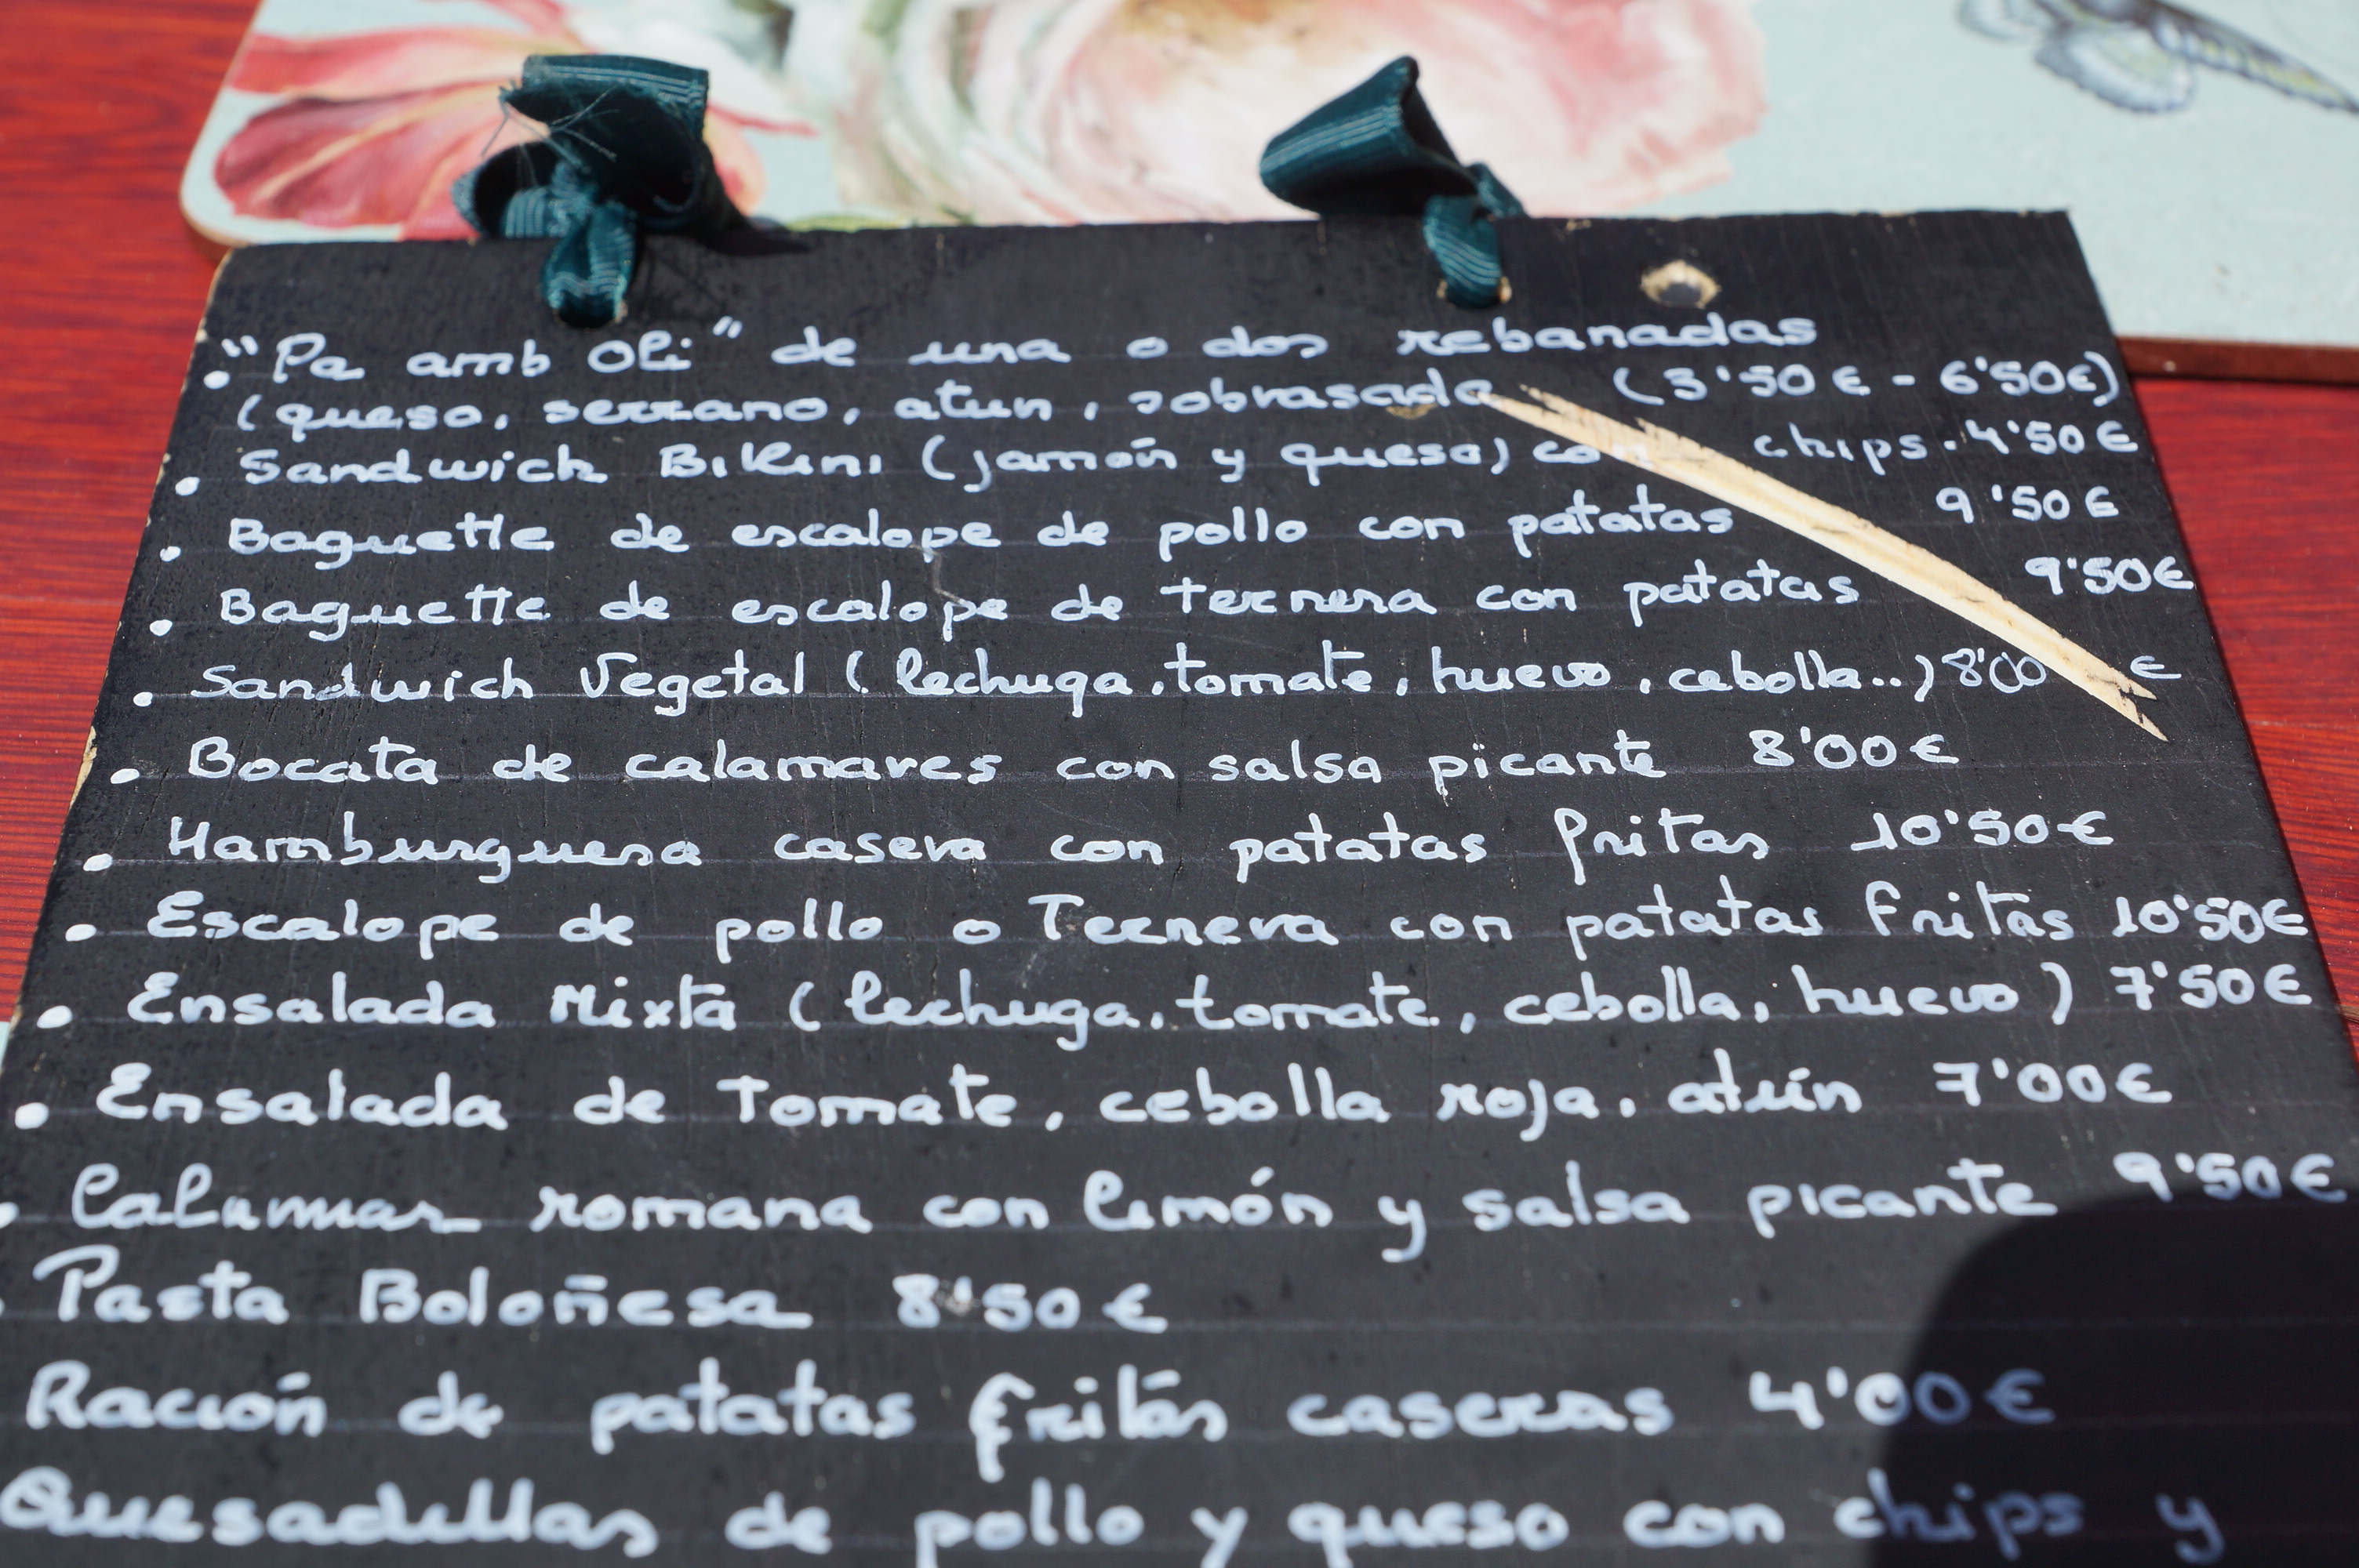 • "Pa amb oli" de una o dos rebanadas
(queso, serrano, atun, sobrasada (3'50€ - 6'50€)
• Sandwich Bikini (jamón y queso) con chips. 4'50€
• Baguette de escalope de pollo con patatas 9'50€
• Baguette de escalope de Ternera con patatas 9'50€
• Sandwich Vegetal (lechuga, tomate, huevo, cebolla..) 8'00 €
• Bocata de calamares con salsa picante 8'00€
• Hamburguesa casera con patatas fritas 10'50€
• Escalope de pollo o Ternera con patatas fritas 10'50€
• Ensalada Mixta (lechuga, tomate, cebolla, huevo) 7'50€
• Ensalada de Tomate, cebolla roja, atún 7'00€
• Calamar romana con limón y salsa picante 9'50€
• Pasta Boloñesa 8'50€
Ración de patatas fritas caseras 4'00€
Quesadillas de pollo y queso con chips y